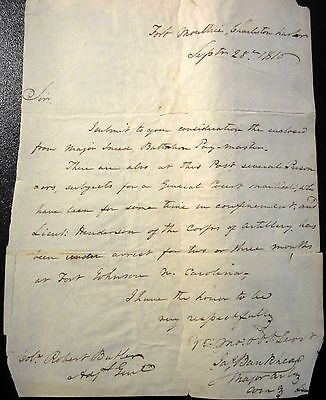 Fort Moultrie, Charleston Harbor
Septr 28th 1815
Sir,
I submit to your consideration the enclosed
from Major Sneed Battalion Pay-master.
There are also at this Post several Prison
ners, subjects for a General Court martial, who
have been for some time in confinement, and
Lieut: Henderson of the Corps of artillery has
been under arrest for two or three months
at Fort Johnson N. Carolina.
I have the honor to be
very respectfully
Yr. Most Obt Servt
Jas Bankhead
Major
Comg
Col. Robert Butler
Adjt Genl